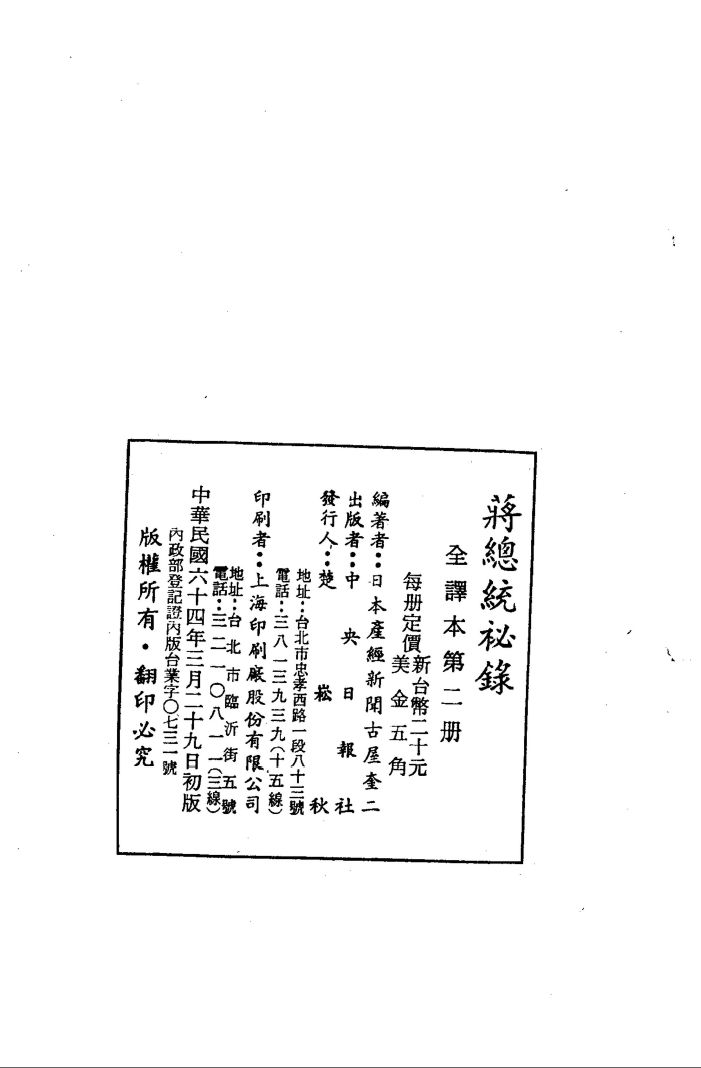 蔣總統祕錄
全譯本第二册
每册定價新台幣二十元
美金五角
編著者：日本產經新聞古屋奎二
出版者：中央日報社
發行人：楚崧秋
地址：台北市忠孝西路一段八十三號
電話：三八一三九三九（十五線）
印刷者：上海印刷廠股份有限公司
地址：台北市臨沂街五號
電話：三二一〇八一一（三線）
中華民國六十四年三月二十九日初版
內政部登記證內版台業字〇七三一號
版權所有・翻印必究